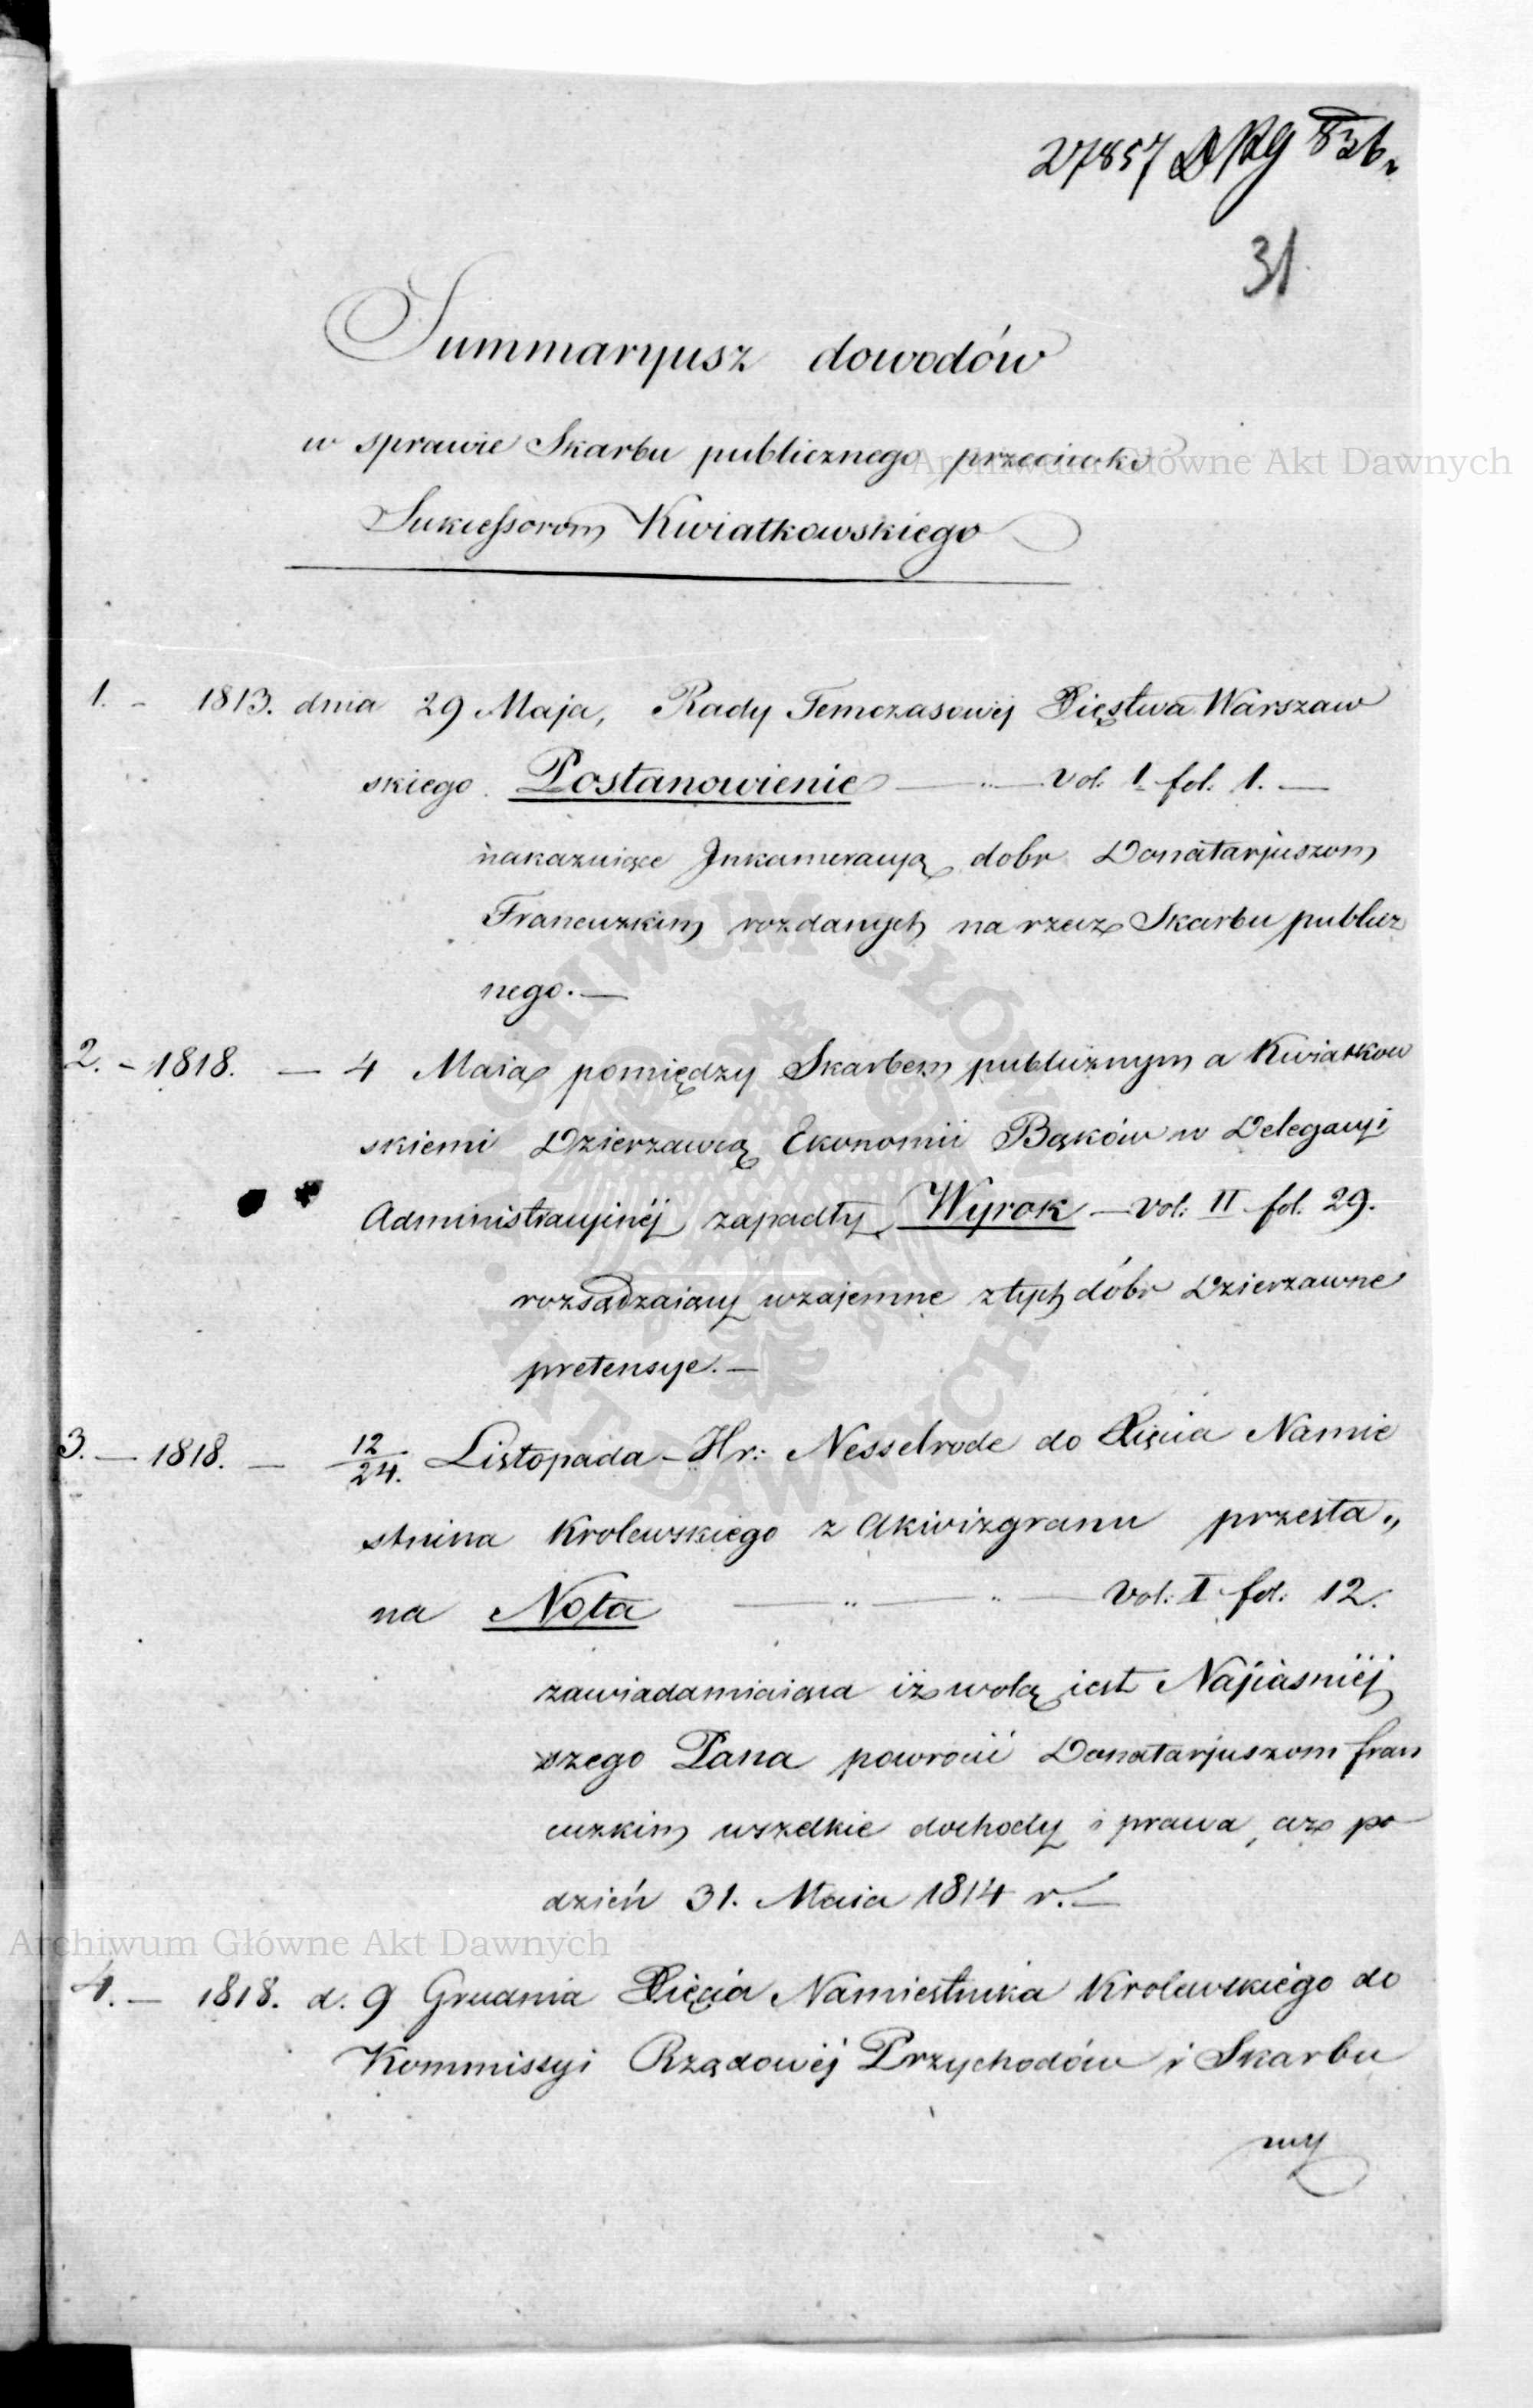 27857 DRG 836
31
Summaryusz dowodów
w sprawie Skarbu publicznego przeciwko
Archiwum Główne Akt Dawnych
Sukcessorom Kwiatkowskiego
1. - 1813. dnia 29 Maja, Rady Temczasowej Xięstwa Warszaw
skiego Postanowienie — " — vol. I fol. 1. —
nakazuiące Inkameracyą dobr Donatarjuszom
Francuzkim rozdanych na rzecz Skarbu publicz
nego. —
2. - 1818. — 4 Maia pomiędzy Skarbem publicznym a Kwiatkow
skiemi Dzierzawcą Ekonomii Bąków w Delegacyi
Administracyinéj zapadły Wyrok — vol: II fol. 29.
rozsądzaiący wzajemne z tych dóbr Dzierzawne
pretensye. —
3. — 1818. — 12/24. Listopada - Hr: Nesselrode do Xięcia Namie
stnika Krolewskiego z Akwizgranu przesła„
na Nota — " — " — vol: I fol: 12.
zawiadamiaiąca iż wolą iest Najiasniéj
szego Pana powrocić Donatarjuszom fran
cuzkim wszelkie dochody i prawa, aż po
dzień 31. Maia 1814 r. —
Archiwum Główne Akt Dawnych
4. — 1818. d. 9 Grudnia Xięcia Namiestnika Krolewskiego do
Kommissyi Rządowéj Przychodów i Skarbu
ARCHIWUM GŁÓWNE AKT DAWNYCH